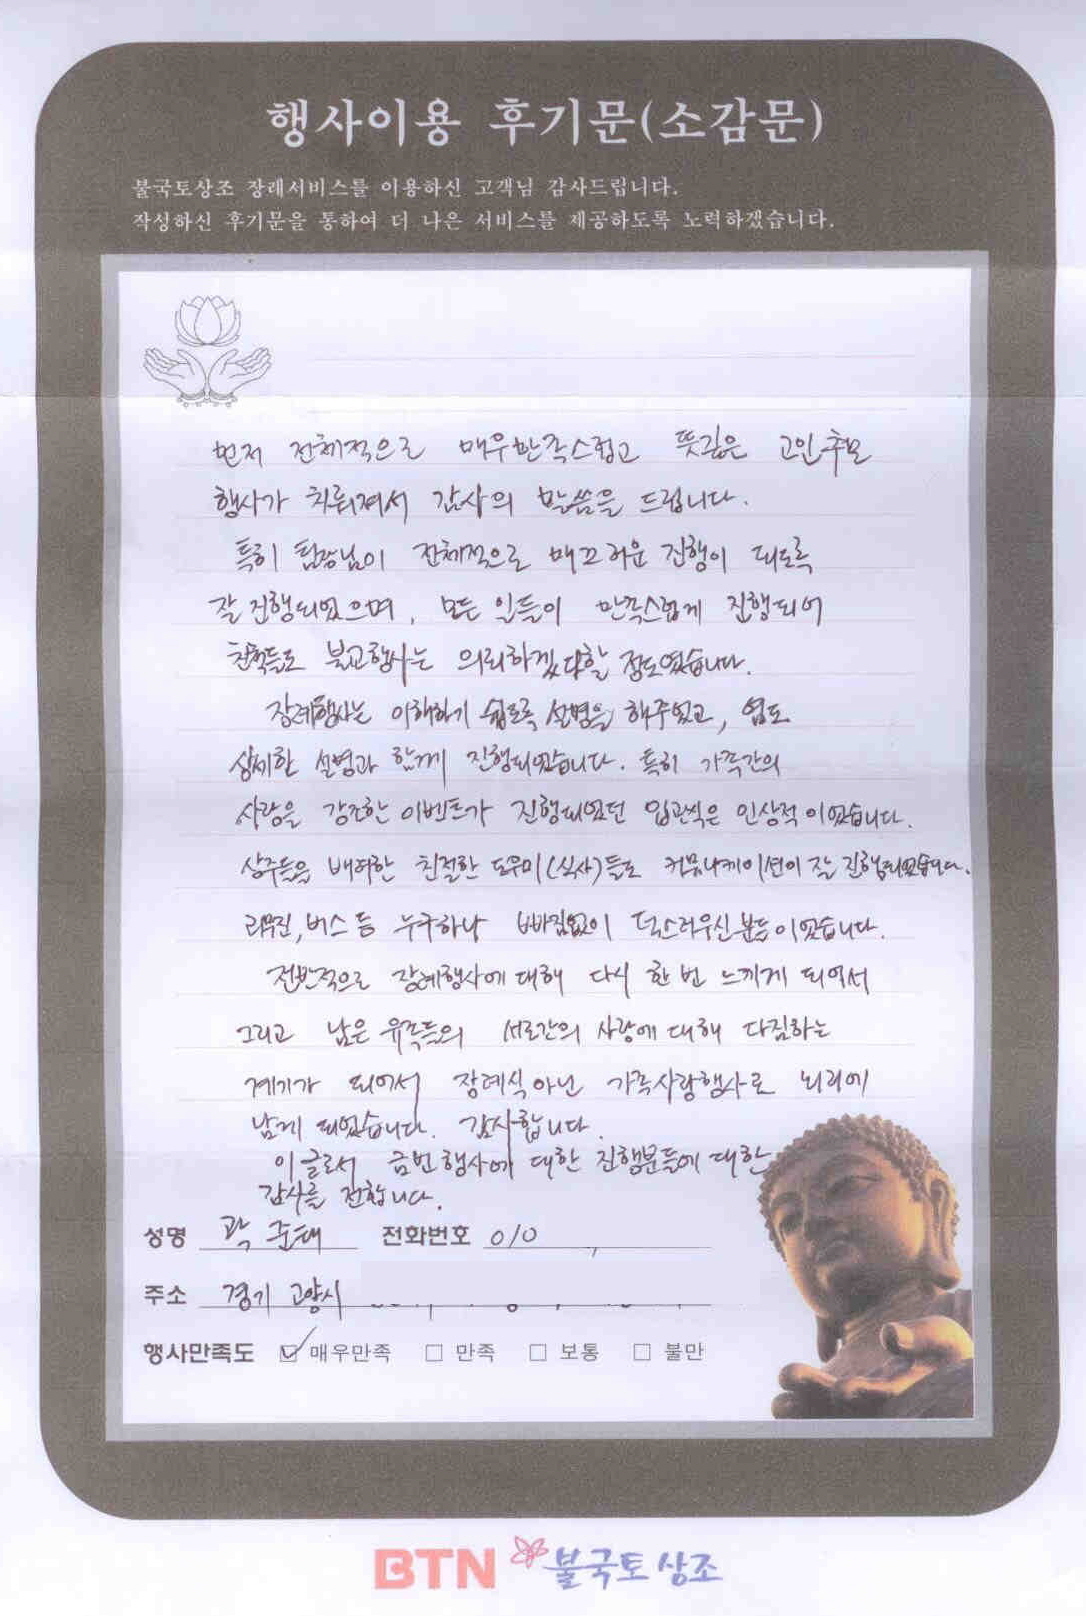 행사이용 후기문(소감문)
불국토상조 장례서비스를 이용하신 고객님 감사드립니다.
작성하신 후기문을 통하여 더 나은 서비스를 제공하도록 노력하겠습니다.
먼저 전체적으로 매우만족스럽고 뜻깊은 고인추모
행사가 치뤄져서 감사의 말씀을 드립니다.
특히 팀장님이 전체적으로 매끄러운 진행이 되도록
잘 진행되었으며, 모든 인들이 만족스럽게 진행되어
친척들도 불교행사는 의뢰하겠다할 정도였습니다.
장례행사는 이해하기 쉽도록 설명을 해주었고, 염도
상세한 설명과 함께 진행되었습니다. 특히 가족간의
사랑을 강조한 이벤트가 진행되었던 입관식은 인상적이었습니다.
상주들을 배려한 친절한 도우미(식사)들도 커뮤니케이션이 잘 진행되었습니다.
리무진, 버스 등 누구하나 빠짐없이 덕스러우신분들이었습니다.
전반적으로 장례행사에 대해 다시 한 번 느끼게 되어서
그리고 남은 유족들의 서로간의 사랑에 대해 다짐하는
계기가 되어서 장례식 아닌 가족사랑행사로 뇌리에
남게 되었습니다. 감사합니다.
이 글로서 금번 행사에 대한 진행분들에 대한
감사를 전합니다.
성명 곽준태 전화번호 010
주소 경기 고양시
행사만족도 ☑ 매우만족 □ 만족 □ 보통 □ 불만
BTN 불국토상조